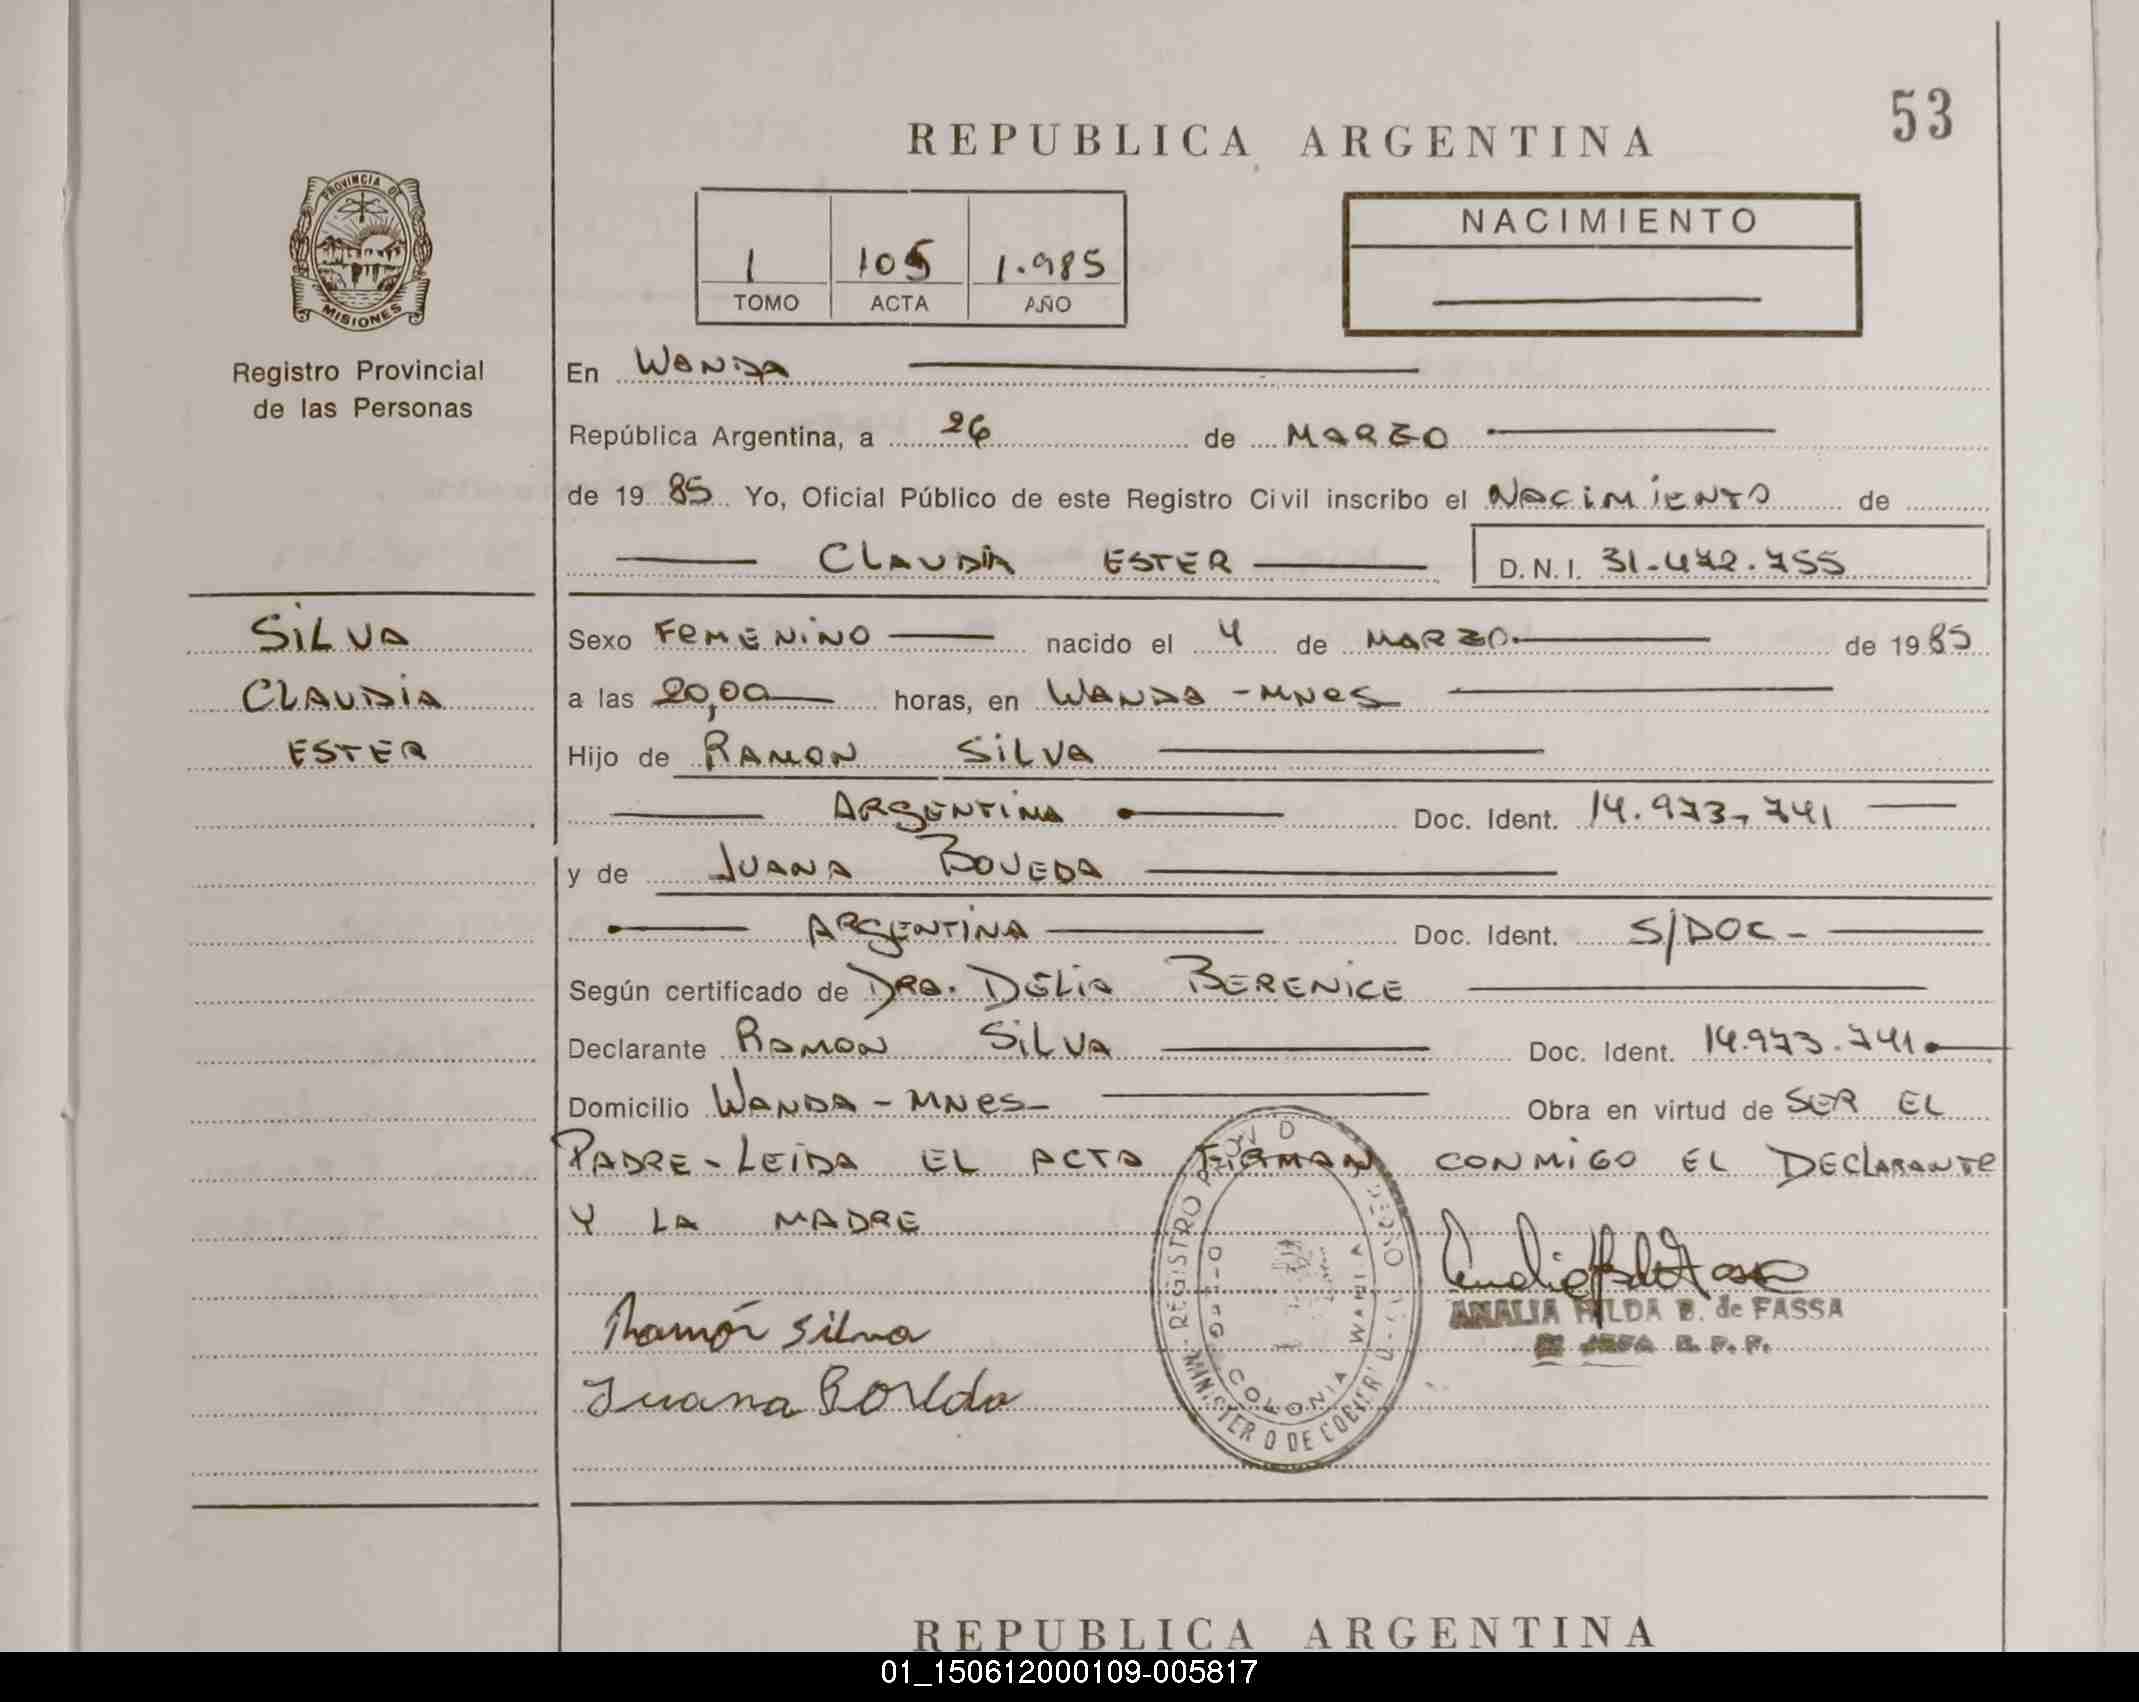 53
REPUBLICA ARGENTINA
PROVINCIA DE
MISIONES
Registro Provincial
de las Personas
1 105 1.985
TOMO ACTA AÑO
NACIMIENTO
En WANDA
República Argentina, a 26 de MARZO
de 1985 Yo, Oficial Público de este Registro Civil inscribo el NACIMIENTO de
CLAUDIA ESTER D.N.I. 31.472.755
SILVA
CLAUDIA
ESTER
Sexo FEMENINO nacido el 4 de MARZO de 1985
a las 20,00 horas, en WANDA - MNES
Hijo de RAMON SILVA
ARGENTINA Doc. Ident. 14.973.741
y de JUANA BOVEDA
ARGENTINA Doc. Ident. S/DOC-
Según certificado de DRA. DELIA BERENICE
Declarante RAMON SILVA Doc. Ident. 14.973.741
Domicilio WANDA - MNES- Obra en virtud de SER EL
PADRE - LEIDA EL ACTA FIRMAN CONMIGO EL DECLARANTE
Y LA MADRE
Ramón Silva
Juana
ANALIA HILDA B. de FASSA
JEFA R. P. P.
REGISTRO
MINISTERIO DE GOBIERNO
COLONIA WANDA
REPUBLICA ARGENTINA
01_150612000109-005817